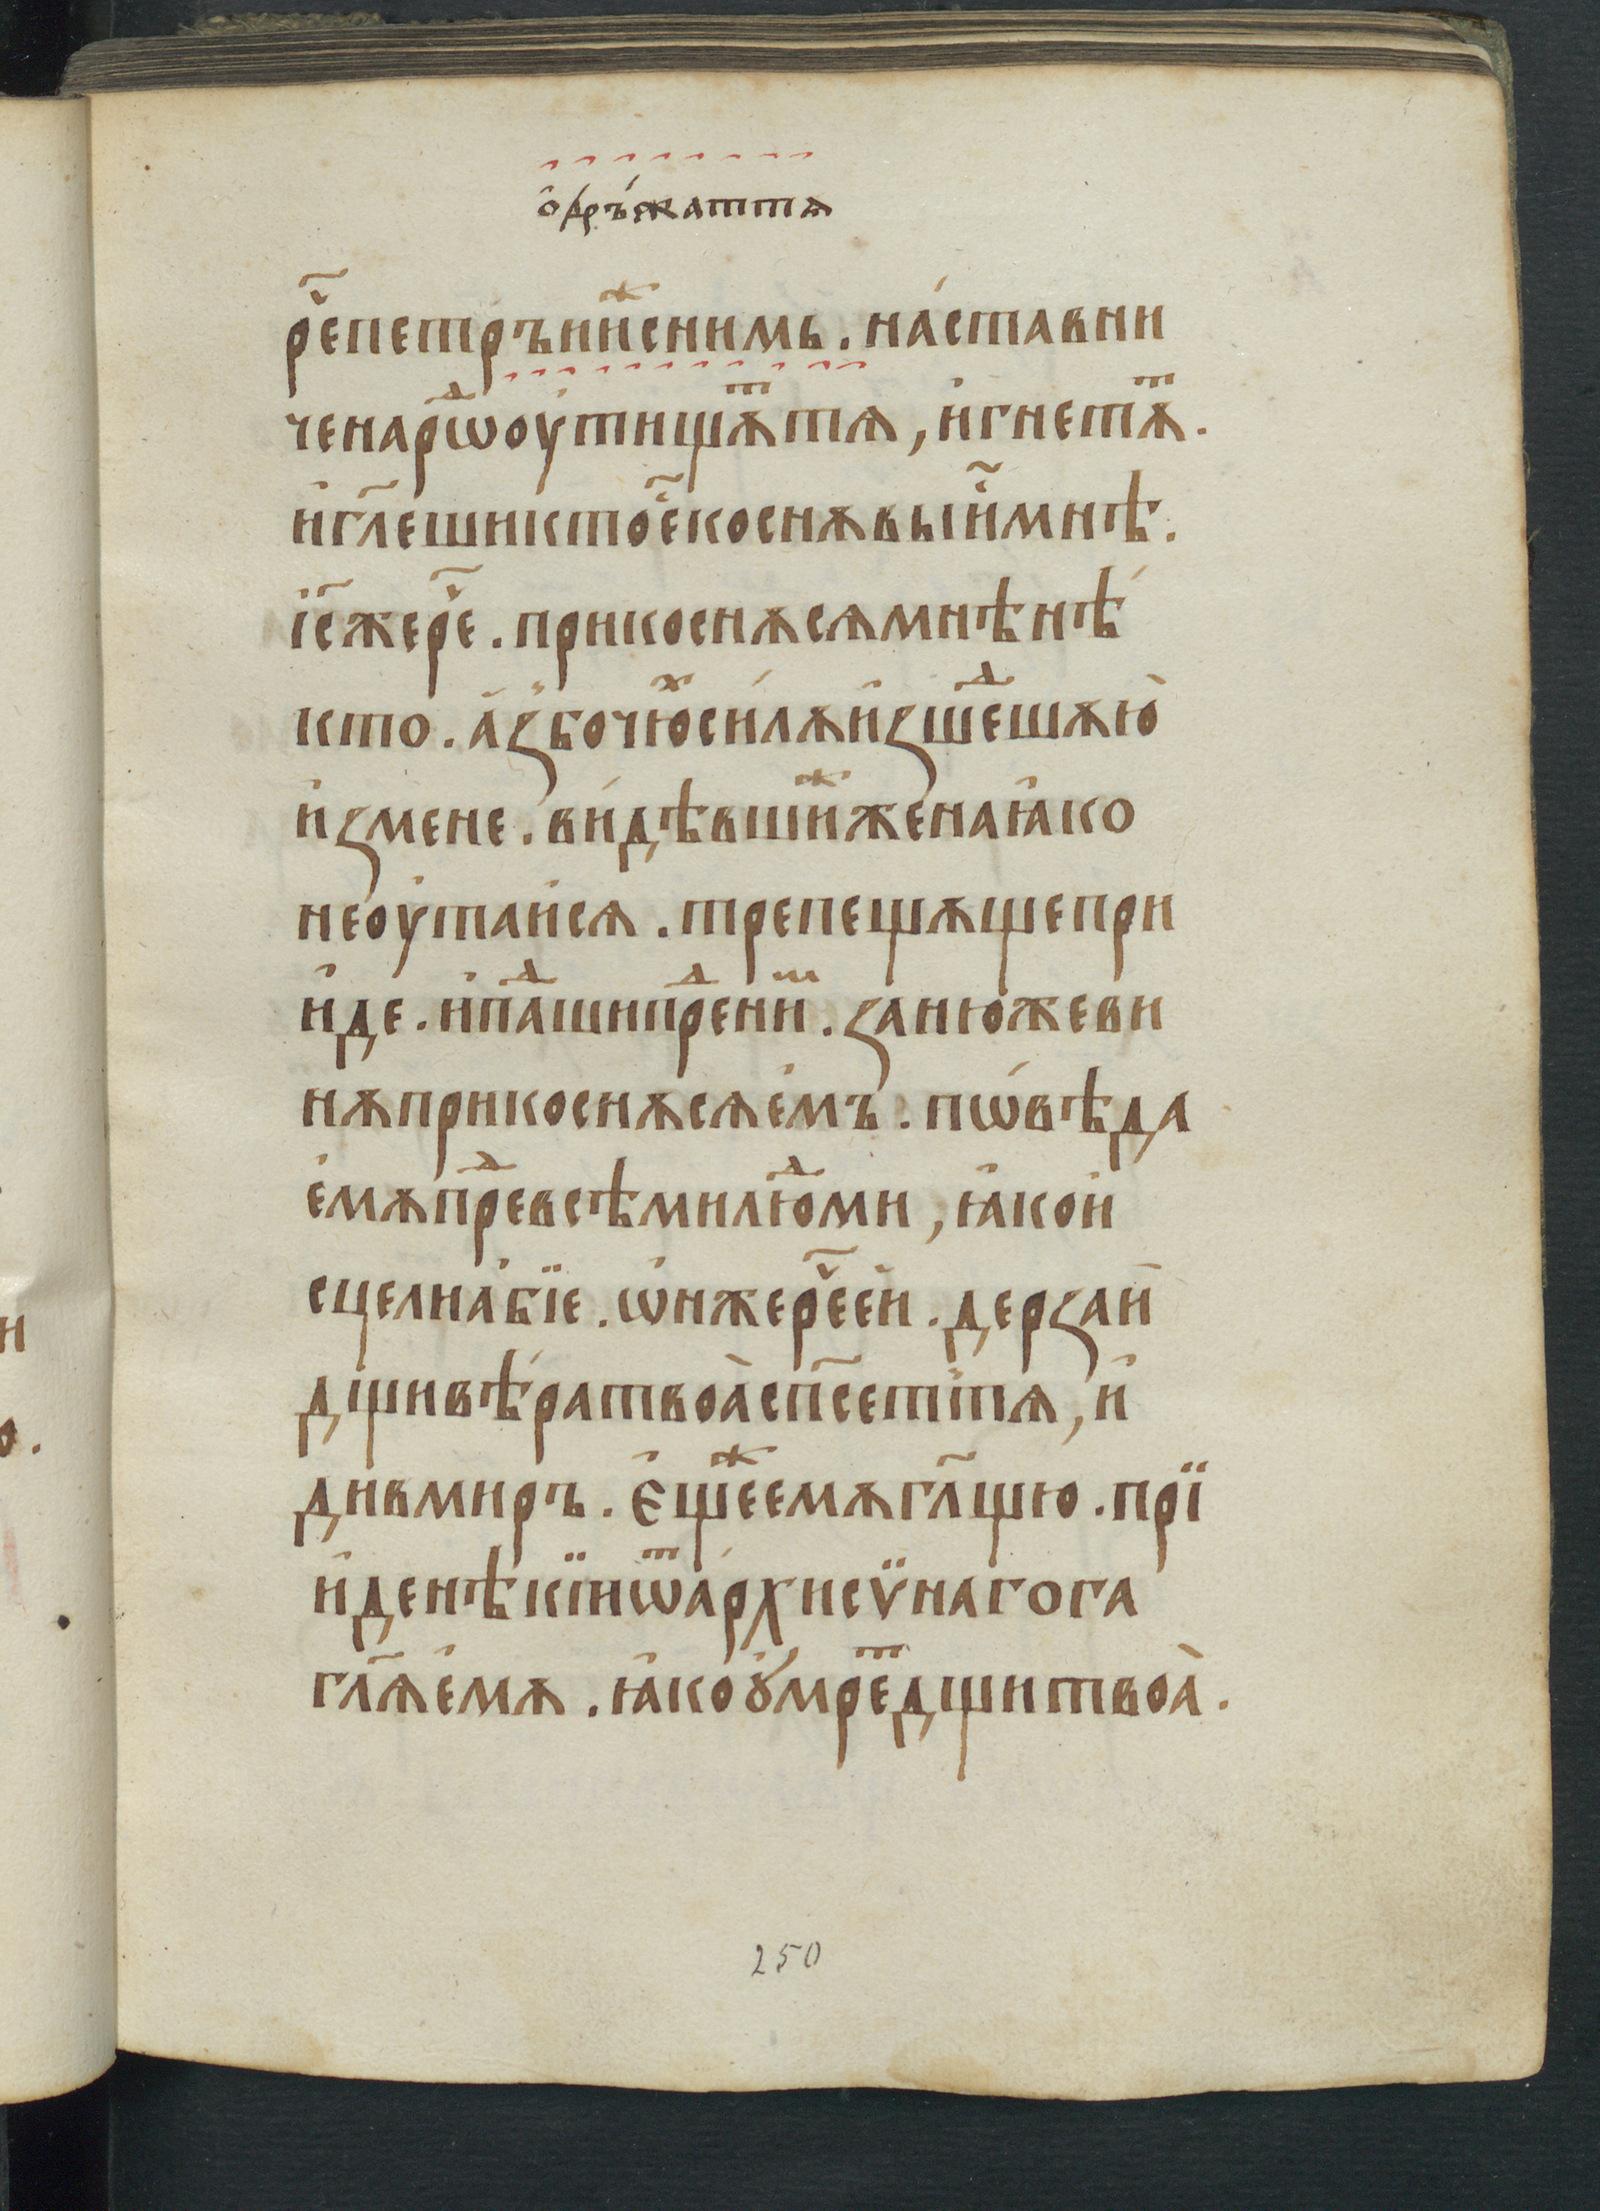 о҆дръ́жаттѧ
рⷱ҇епетръии҆ⷤснимь . на́ставни
ченарⷣѡоу҆тищѫⷮтѧ , и҆гнетѫⷮ .
и҆гл҃ешиктоⷭ҇екоснѫвыи҆ⷨмнѣ .
іс҃жерⷱ҇е . прикоснѫсѧмнѣнѣ́
кто . а҆́ꙁбочюⷯси́лѫи҆ꙁшеⷣшѫю̀
и҆ꙁмене . ви́дѣвшиⷤженаꙗ҆ко
неоу҆таи҆сѧ . трепещѫщепри
и҆де . и҆паⷣшипреⷣниⷨ . ꙁанюⷤжеви
нѫприкоснѫсѧе҆мъ . пѡ́вѣда
е҆мѫпреⷣвсѣмилюⷣми , ꙗ҆кои
сцелиа҆бїе . ѡ҆нжерⷱ҇еей . дерꙁай
дщивѣ́ратвоа̀сп҃сеттѧ , и҆
дивмиръ . е҆щеⷤемѫгл҃щю . прїи
и҆денѣкїиѿа҆рхисѵнагога
гл҃ѧе҆мѫ . ꙗ҆коꙋ҆́мреⷮдщитвоа̀ .
250